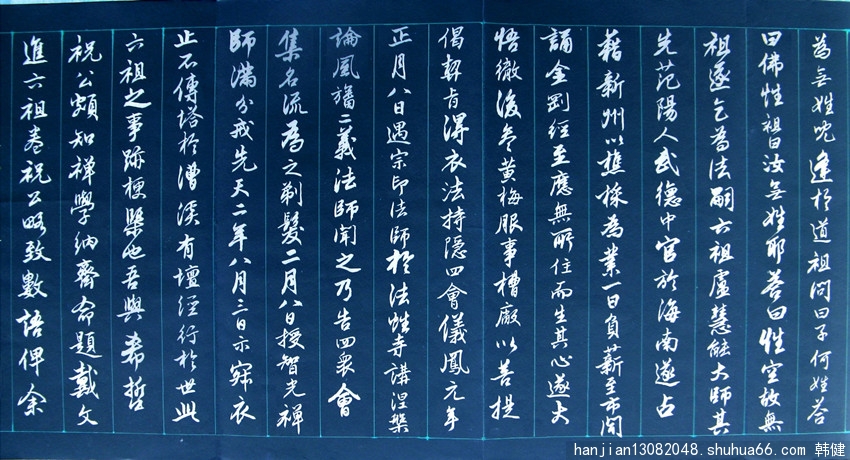 為無姓兒逢栽道祖問曰子何姓答
曰佛性祖曰汝無姓耶答曰性空故無
祖遂乞為法嗣六祖盧慧能大師其
先范陽人武德中官於海南遂占
籍新州以樵採為業一日負薪至市聞
誦金剛經至應無所住而生其心遂大
悟徹後參黃梅服事槽廠以菩提
偈契旨得衣法持隱四會儀鳳元年
正月八日遇宗印法師於法性寺講涅槃
論風旛二義法師聞之乃告四眾會
集名流為之剃髮二月八日授智光禪
師滿分戒先天二年八月三日示寂衣
止不傳塔於漕溪有壇經行於世此
六祖之事跡梗槩也吾與希哲
祝公頗知禅學納齋命題戴文
進六祖卷祝公略致數語俾余
hanjian13082048.shuhua66.com 韩健